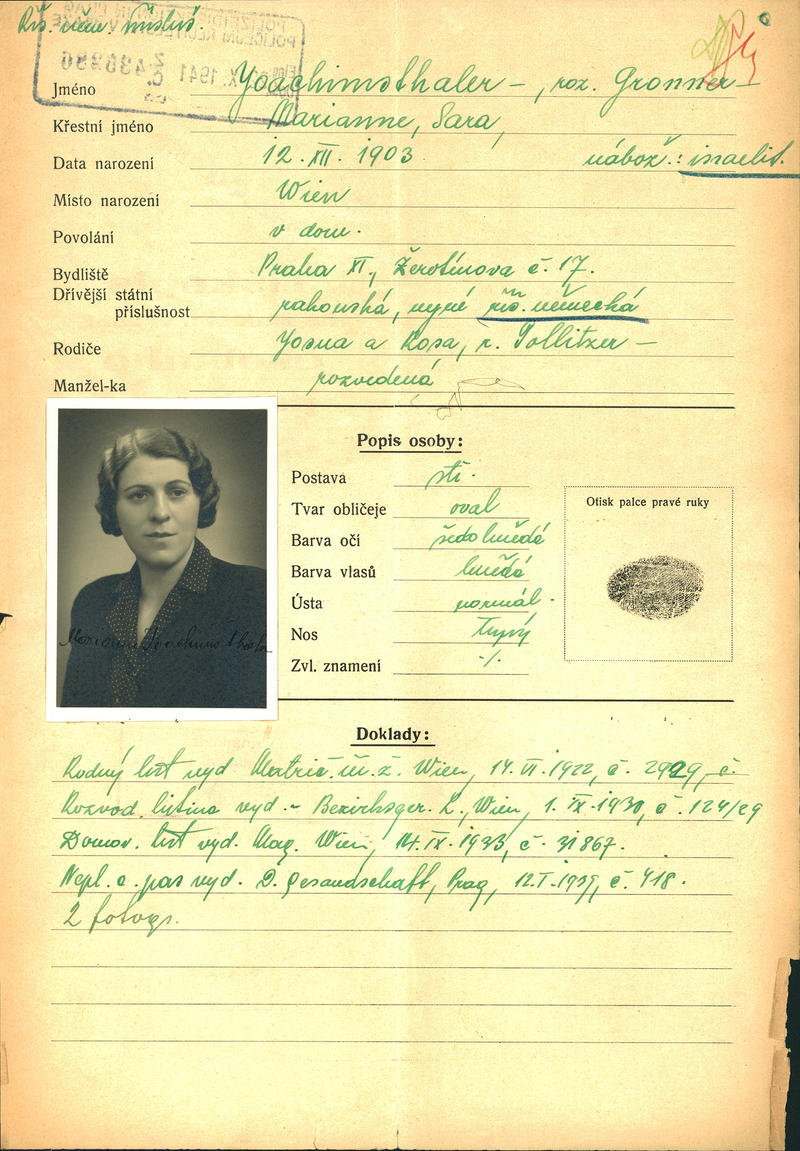 Říš. něm. přísluš.
POLICEJNÍ
Z. 436396
Č.
X. 1941
Jméno Joachimsthaler - , roz. Gronner -
Křestní jméno Marianne, Sara,
Data narození 12. XII. 1903. nábož.: israelit.
Místo narození Wien
Povolání v dom.
Bydliště Praha XI., Žerotínova č. 17.
Dřívější státní
příslušnost rakouská, nyní říš. německá
Rodiče Josua a Rosa, r. Pollitzer -
Manžel-ka rozvedená
Popis osoby:
Postava stř.
Tvar obličeje oval
Otisk palce pravé ruky
Barva očí šedohnědé
Barva vlasů hnědé
Ústa normál.
Nos
Zvl. znamení ./.
Marianne Joachimsthaler
Doklady:
Rodný list vyd. Matrič. ú. ž. Wien, 14. VI. 1922, č. 2929, č.
Rozvod. listina vyd. - Bezirksger. L., Wien, 1. IX. 1930, č. 124/29
Domov. list vyd. Mag. Wien, 14. IX. 1933, č. 31867.
Nepl. c. pas vyd. D. Gesandschaft, Prag, 12. I. 1939, č. 418.
2 fotogr.